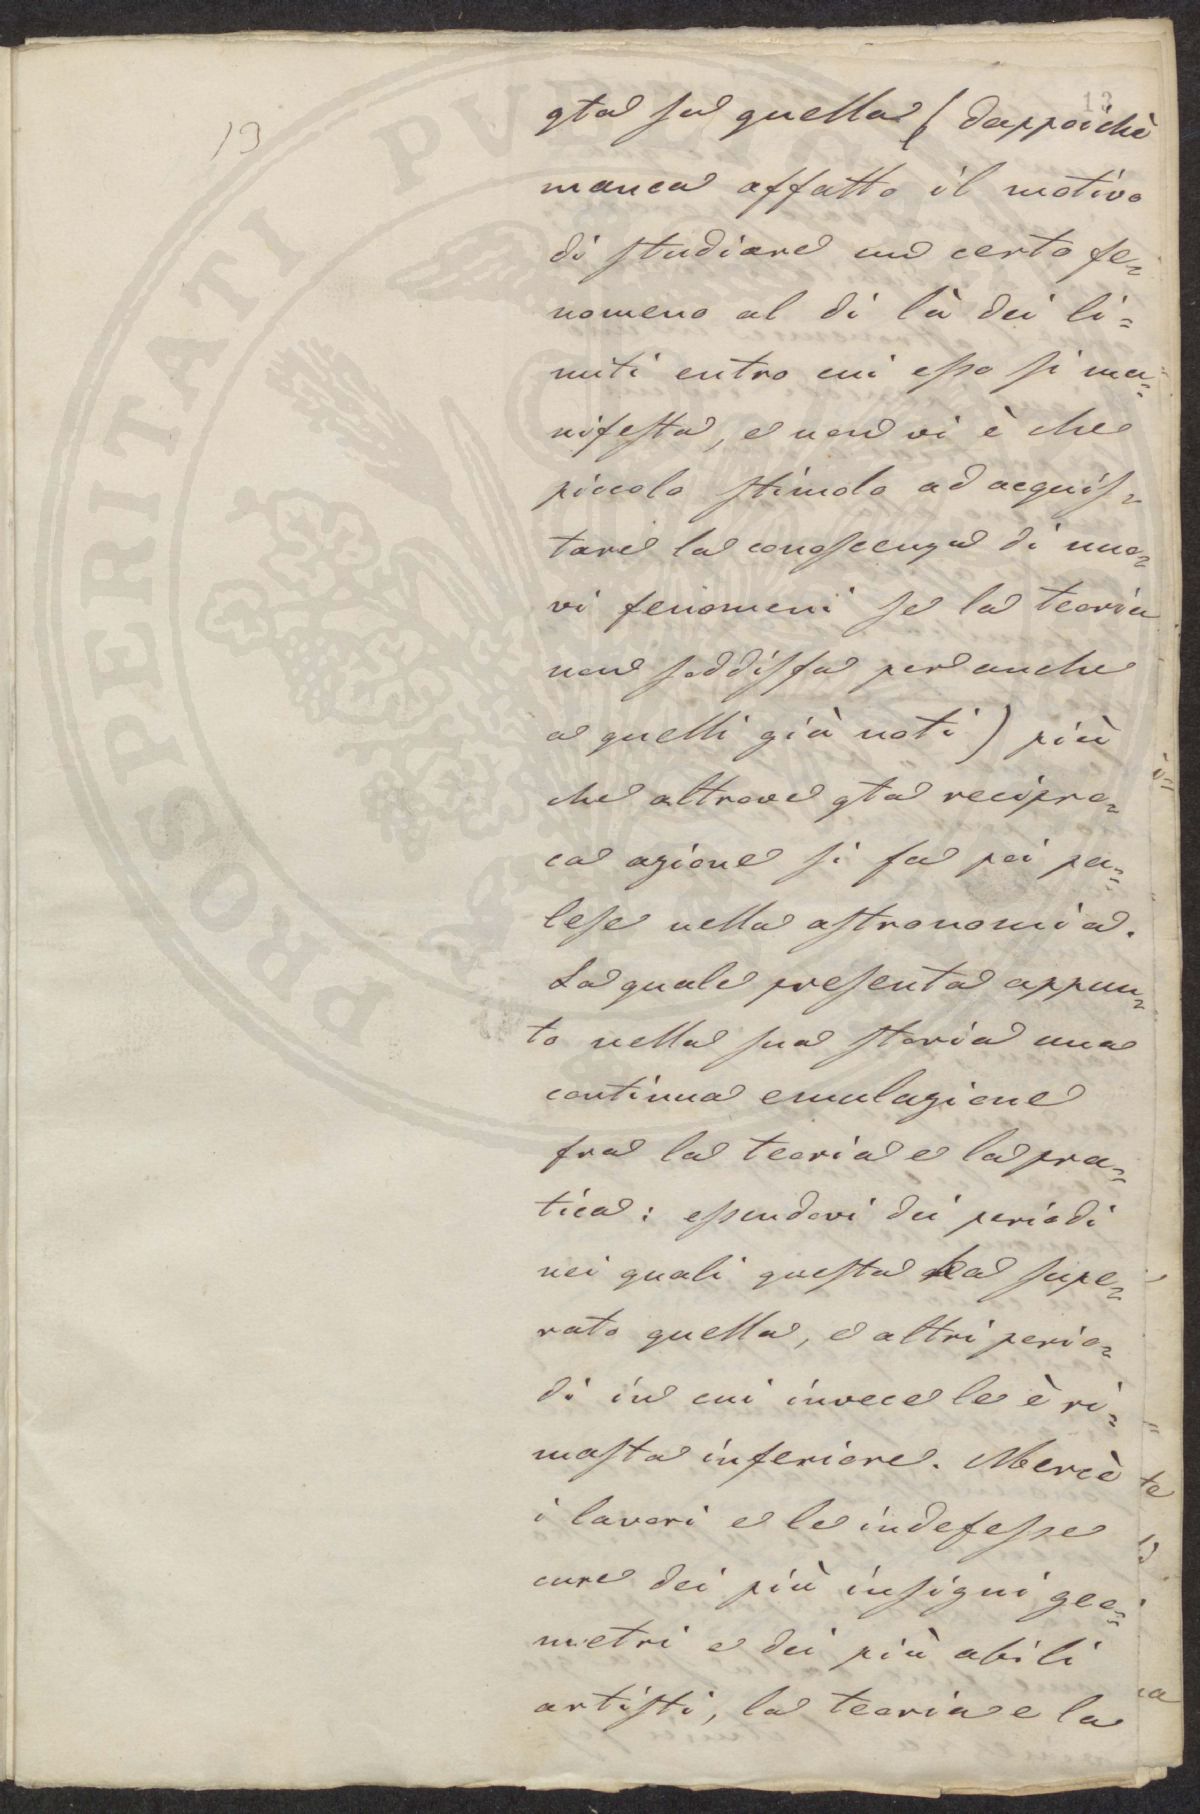 13
13
gta su quella (dappoichè
manca affatto il motivo
di studiare un certo fe=
nomeno al di là dei li=
miti entro cui esso si ma=
nifesta, e non vi è che
piccolo stimolo ad acquis=
tare la conoscenza di nuo=
vi fenomeni se la teoria
non soddisfa per anche
a quelli già noti) più
che altrove gta recipro=
ca azione si fa poi pa=
lese nella astronomia.
La quale presenta appun=
to nella sua storia una
continua emulazione
fra la teoria e la pra=
tica: essendovi dei periodi
nei quali questa ha supe=
rato quella, e altri perio=
di in cui invece le è ri=
masta inferiore. Mercè
i lavori e le indefesse
cure dei più insigni geo=
metri e dei più abili
artisti, la teoria e la
PROSPERITATI PVBLICAE